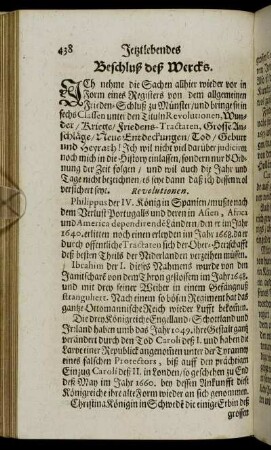 438 Jetztlebendes
Beschluß deß Wercks.
ICh nehme die Sachen allhier wieder vor in
Form eines Registers von dem allgemeinen
Frieden-Schluß zu Münster/und bringe sie in
sechs Classen unter den Tituln Revolutionen, Wun-
der / Kriege / Friedens-Tractaten, Grosse An-
schläge / Neue Entdeckungen / Tod / Geburt
und Heyrath! Ich wil nicht viel darüber judiciren
noch mich in die History einlassen, sondern nur d' Ord-
nung der Zeit folgen / und weil auch die Jahr und
Tage nicht bezeichnen / es sey dann daß ich dessen wol
versichert seye. Revolutionen.
Philippus der IV. König in Spanien / muste nach
dem Verlust Portugalls und deren in Asien, Africa
und America dependirende Ländern, den er im Jahr
1640. erlitten noch einen erleyden im Jahr 1668. dan er
durch offentliche Tractaten sich der Ober-Herrschafft
deß besten Theils der Niderlanden verzeihen müssen.
Ibrahim der I. dieses Nahmens wurde von den
Janitscharē von dem Thron gestossen im Jahr 1648.
und mit drey seiner Weiber in einem Gefängnüß
strangulirt. Nach einem so bösen Regiment hat das
gantze Ottomannische Reich wieder Lufft bekom̃en.
Die drey Königreich Engelland / Schottland und
Irrland haben umb das Jahr 1649. ihre Gestalt gantz
verändert durch den Tod Caroli deß I. und haben die
Larve einer Republick angenom̃en unter der Tyranney
eines falschen Protectors, biß auff den prächtigen
Einzug Caroli deß II. in Londen / so geschehen zu End
deß May im Jahr 1660. bey dessen Ankunfft diese
Königreiche ihre alte Form wieder an sich genommen.
Christina Königin in Schwedē die einige Erbin deß
grossen